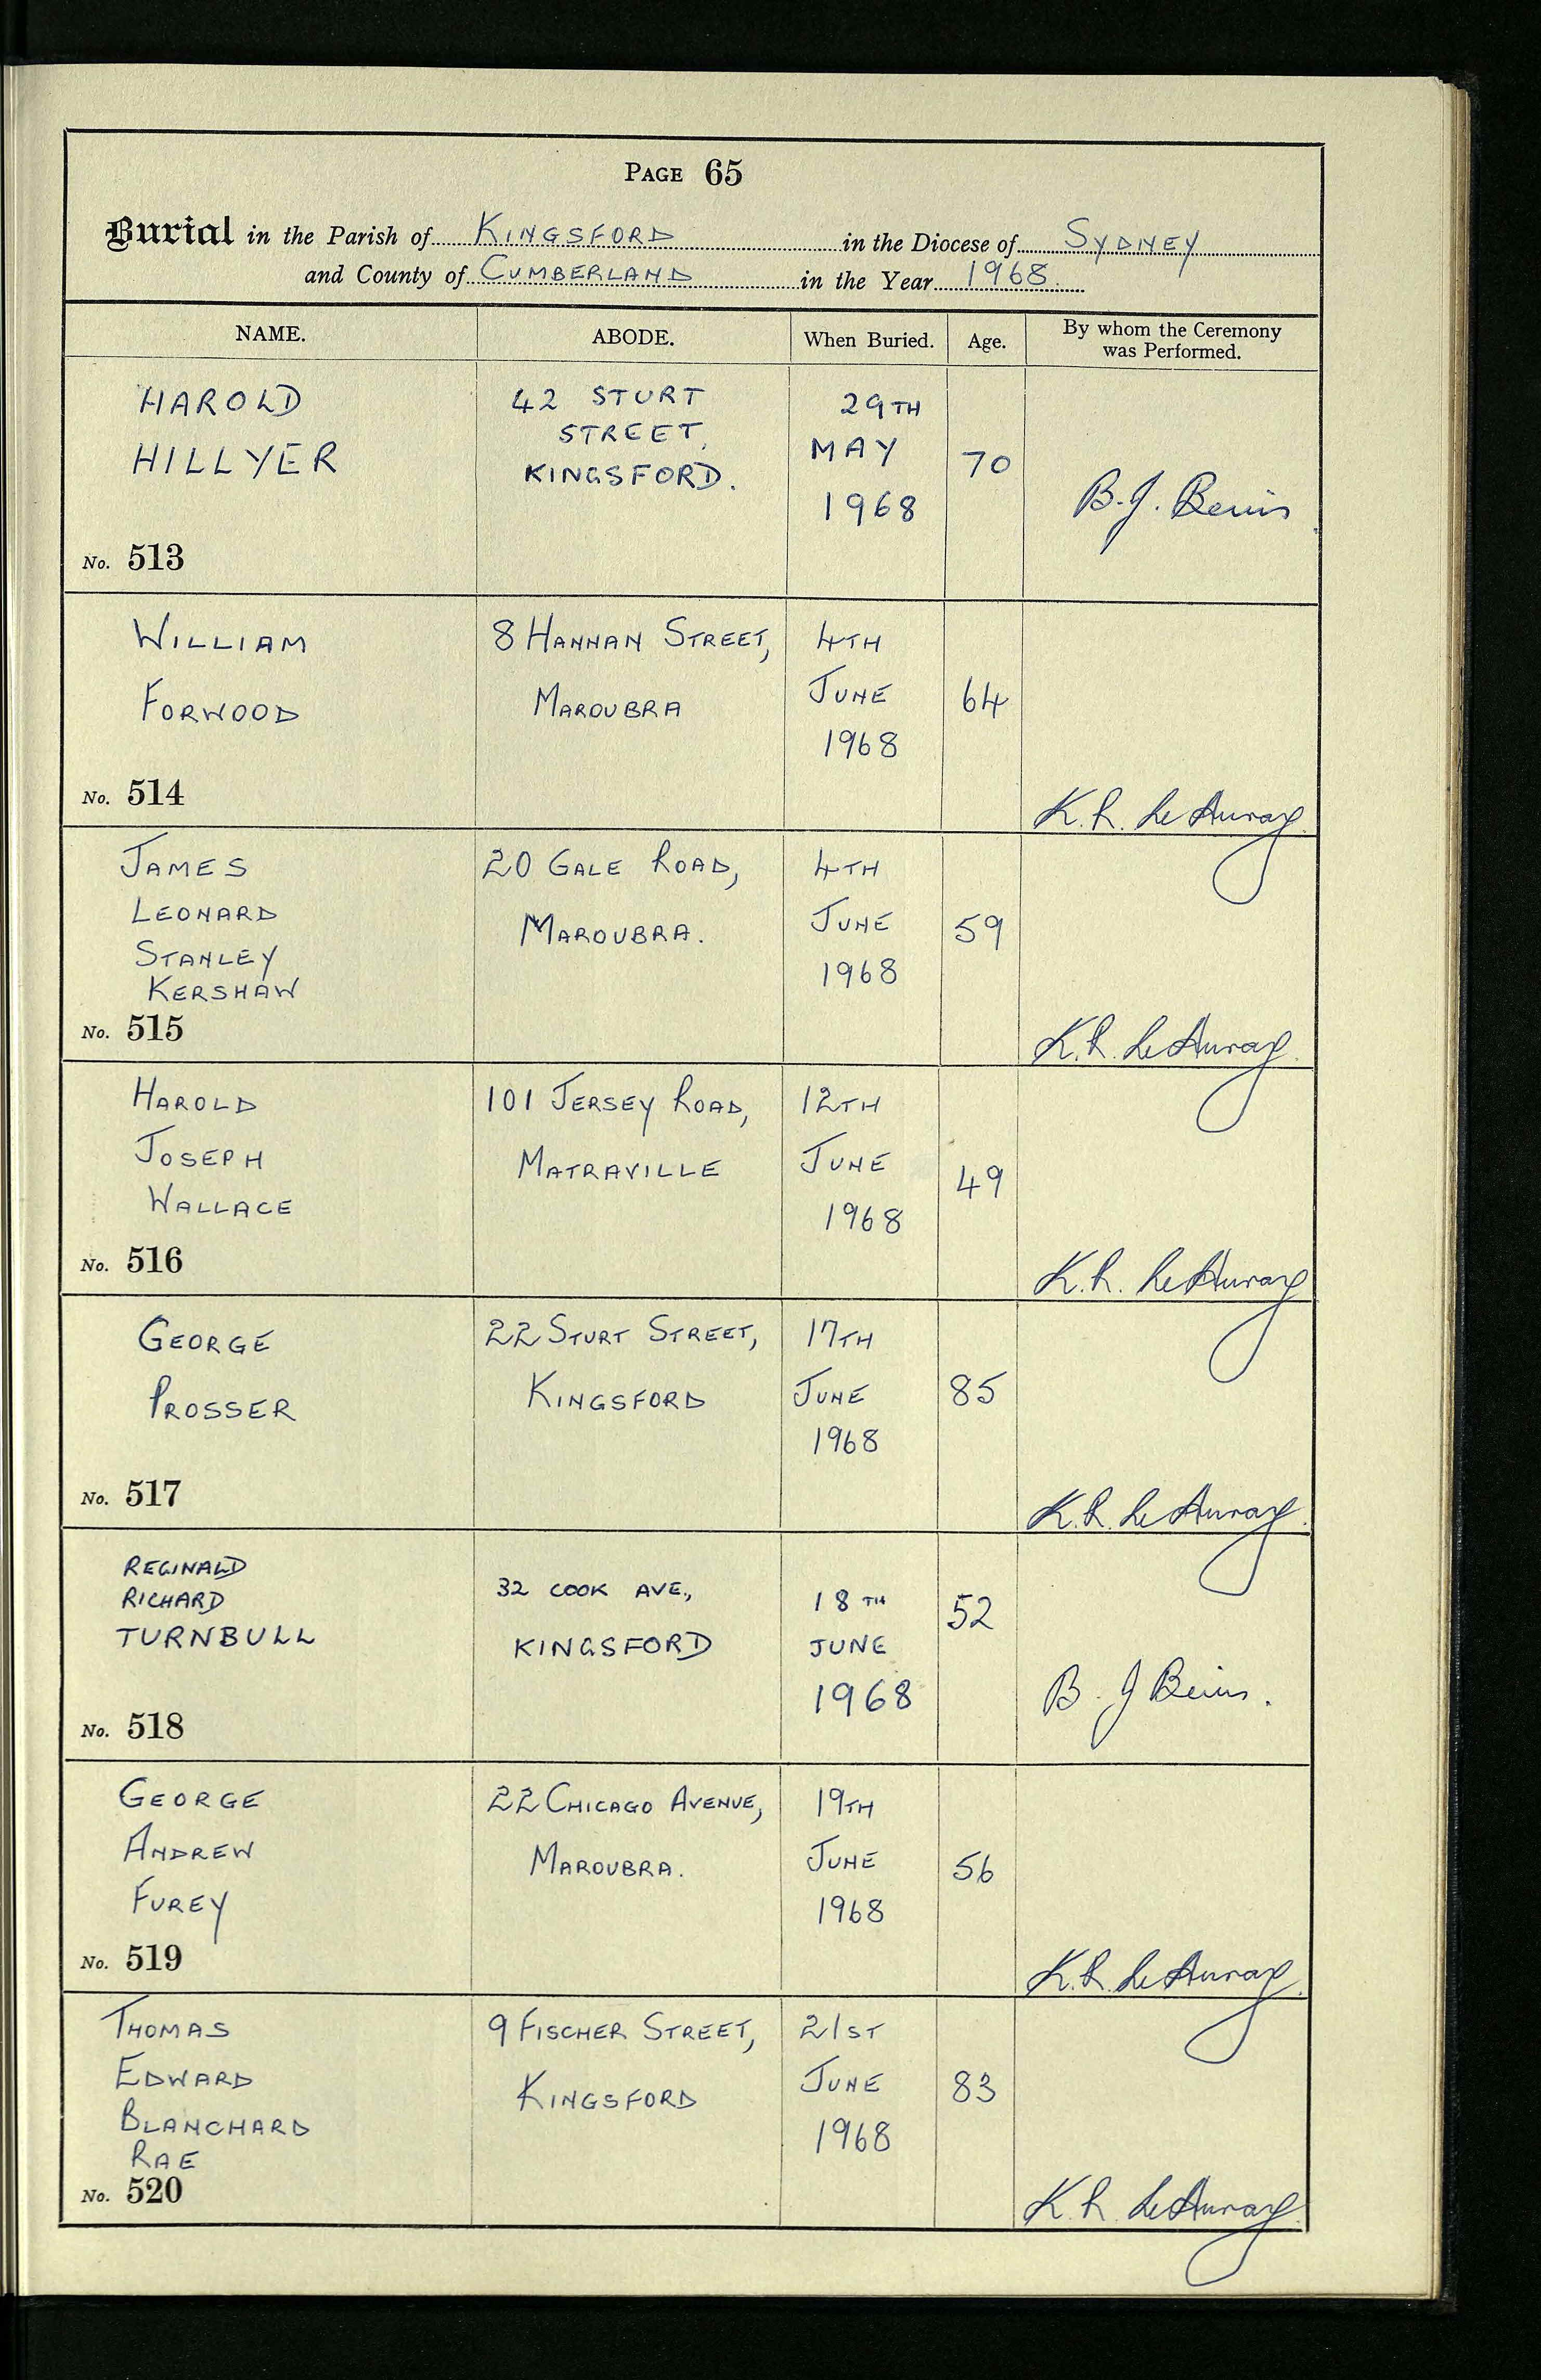 PAGE 65
Burial in the Parish of KINGSFORD in the Diocese of SYDNEY
and County of CUMBERLAND in the Year 1968
NAME. ABODE. When Buried. Age. By whom the Ceremony was Performed.
HAROLD
HILLYER
No. 513
42 STURT
STREET,
KINGSFORD.
29TH
MAY
1968
70
B. J.
WILLIAM
FORWOOD
No. 514
8 HANNAN STREET,
MAROUBRA
4TH
JUNE
1968
64
K. R. Le Huray
JAMES
LEONARD
STANLEY
KERSHAW
No. 515
20 GALE ROAD,
MAROUBRA.
4TH
JUNE
1968
59
K. R. Le Huray
HAROLD
JOSEPH
WALLACE
No. 516
101 JERSEY ROAD,
MATRAVILLE
12TH
JUNE
1968
49
K. R. Le Huray
GEORGE
PROSSER
No. 517
22 STURT STREET,
KINGSFORD
17TH
JUNE
1968
85
K. R. Le Huray
REGINALD
RICHARD
TURNBULL
No. 518
32 COOK AVE.,
KINGSFORD
18TH
JUNE
1968
52
B. J
GEORGE
ANDREW
FUREY
No. 519
22 CHICAGO AVENUE,
MAROUBRA.
19TH
JUNE
1968
56
K. R. Le Huray
THOMAS
EDWARD
BLANCHARD
RAE
No. 520
9 FISCHER STREET,
KINGSFORD
21ST
JUNE
1968
83
K. R. Le Huray